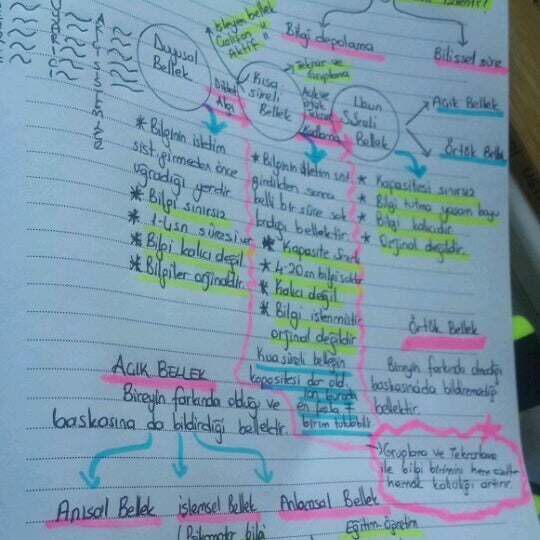 işleyen bellek
Çalışan
Aktif
Bilgi depolama
Bilissel süre
Duyusal
Bellek
Dikkat
Algı
Kısa
süreli
Bellek
Tekrar ve
Gruplama
Açık ve
örtük
Tekrar
Kodlama
Uzun
Süreli
Bellek
Açık Bellek
Örtük Bellek
* Bilginin işletim
sist. girmeden önce
uğradığı yerdir
* Bilgi sınırsız
* 1-4sn süresi var
* Bilgi kalıcı değil
* Bilgiler orjinaldir.
* Bilginin işletim sist
girdikten sonra
belli bir süre sak
landığı bellektir.
* Kapasite Sınırlı
* 4-20sn bilgi saklar
* Kalıcı değil
* Bilgi işlenmiştir
orjinal değildir
Kısa süreli belleğin
kapasitesi dar old.
için burada
en fazla 7
birim tutulabilir.
* Kapasitesi sınırsız
* Bilgi tutma yaşam boyu
* Bilgi kalıcıdır
* Orjinal değildir.
AÇIK BELLEK
Bireyin farkında olduğu ve
baskasına da bildirdiği bellektir.
Anısal Bellek
işlemsel Bellek
Anlamsal Bellek
Eğitim-öğretim
Örtük Bellek
Bireyin farkında olmadığı
baskasınada bildiremediği
bellektir.
Gruplama ve Tekrarlama
ile bilgi birimini hem
hemde kalıcılığı artırır.